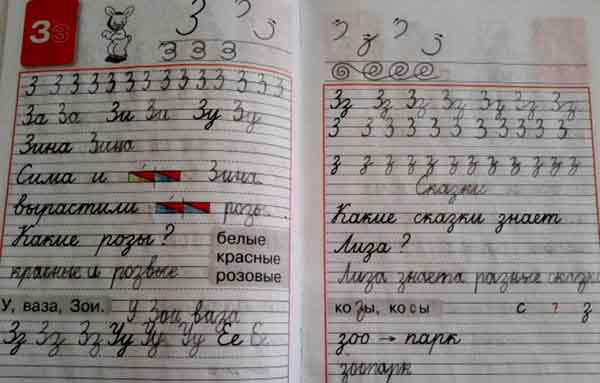 Зз
З
з з з
З З З З З З З З З З З З З
За За Зи Зи Зу Зу
Зина Зина
Сима и Зина
вырастили розы.
Какие розы?
белые
красные
розовые
красные и розвые
У, ваза, Зои.
У Зои ваза
Зз Зз Зз Уу Уу Уу Ее Ее
Зз Зз Зз Зз Зз Зз Зз
З З З З З З З З З З З
з з з з з з з з з з з з
Сказки
Какие сказки знает
Лиза?
Лиза знаета разные сказки
козы, косы с ? з
зоо → парк
зоопарк